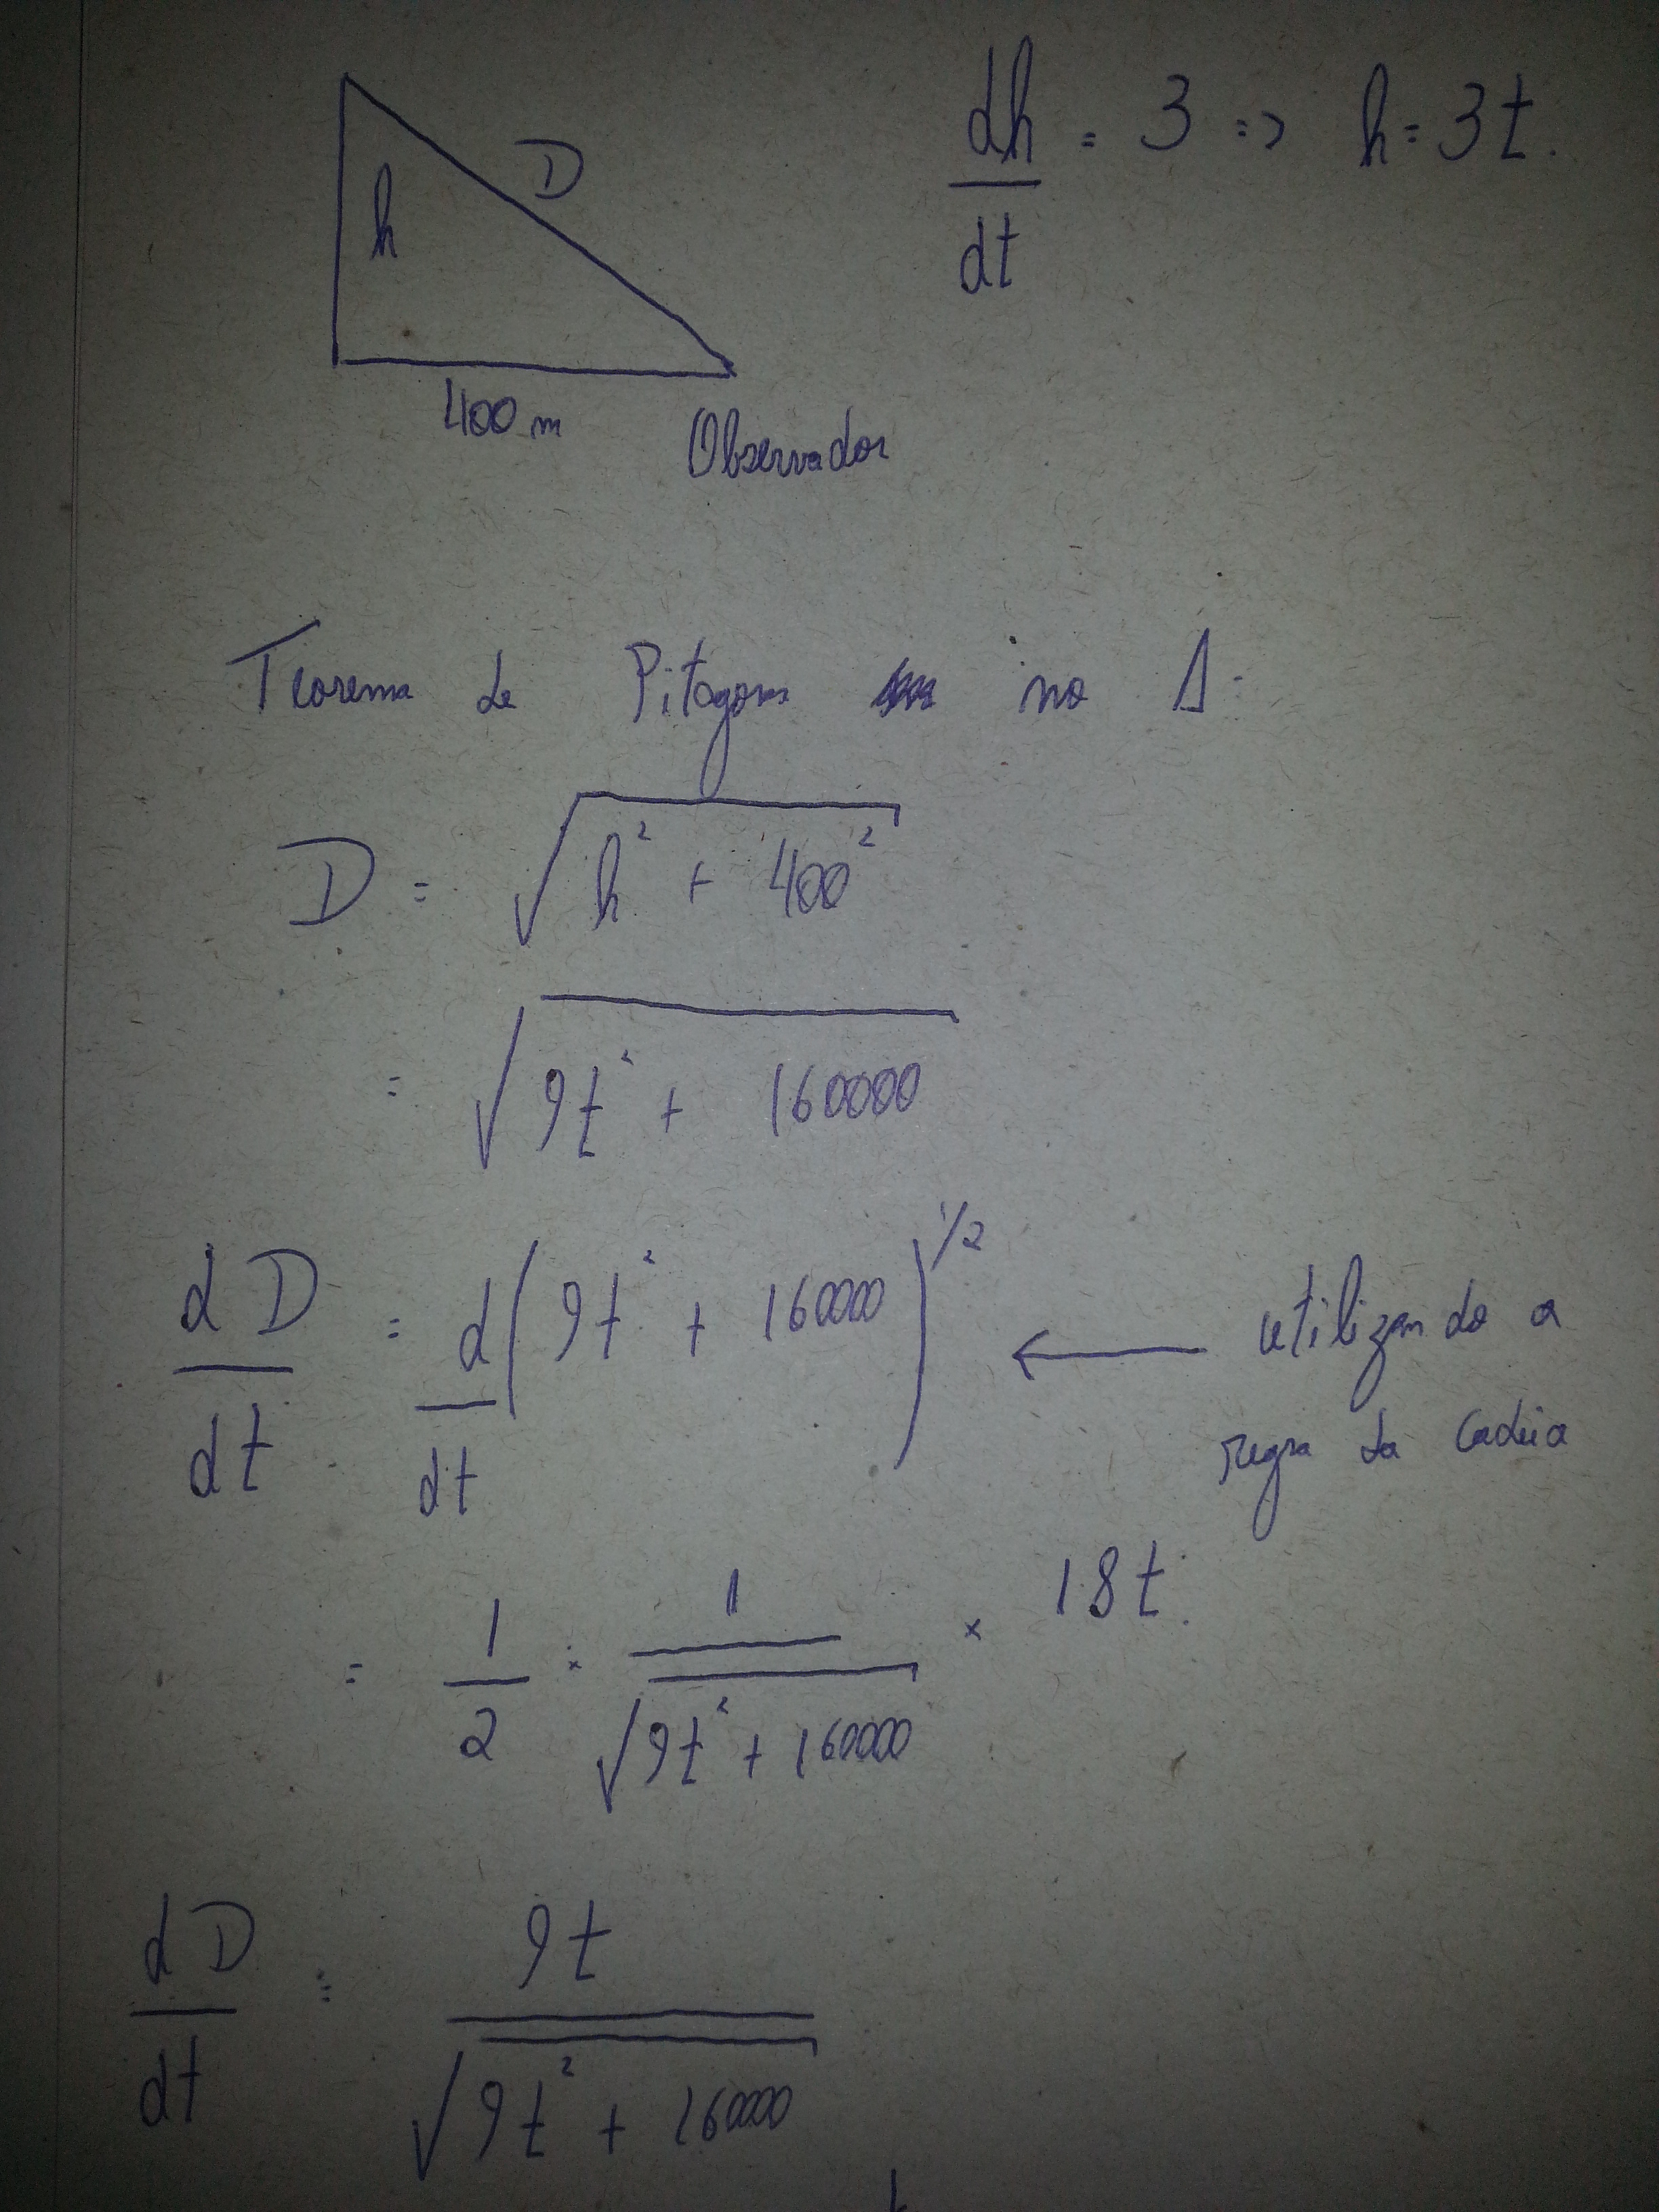 dh/dt = 3 => h = 3t.
h
D
400 m
Observador
Teorema de Pitagoras no Δ.
D = √(h² + 400²)
= √(9t² + 160000)
dD/dt = d/dt (9t² + 160000)^1/2 ← utilizando a
regra da cadeia
= 1/2 × 1/√(9t² + 160000) × 18t.
dD/dt = 9t/√(9t² + 160000)